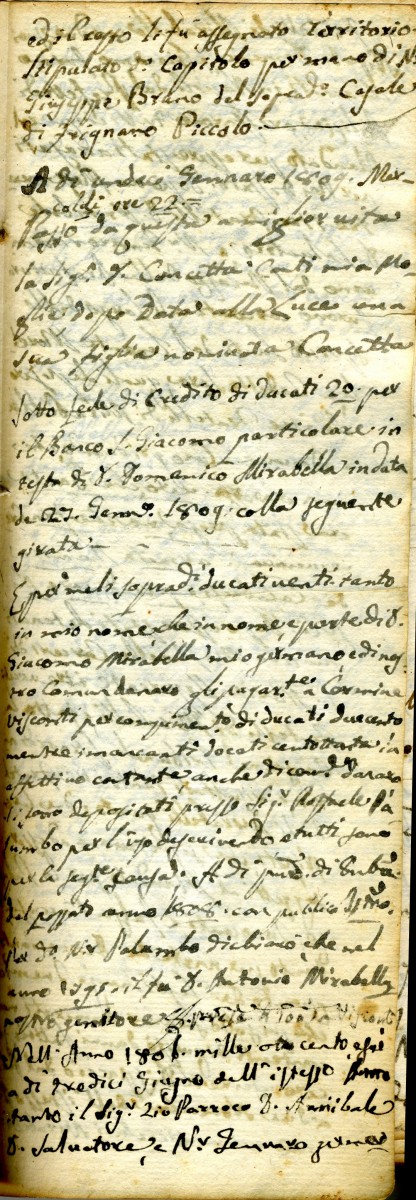 ed il resto li fu assegnato Territorio
Stipulato d.° Capitolo per mano di Nr
Giuseppe Bruno del sopred.° Casale
di Trignano Piccolo
A dì undeci Gennaro 1809. Mer=
coldì ore 22 =
Passò da questa a miglior vita
la Sig.ra D. Concetta Conti mia Mo
glie dopo Data alla Luce una
sua figlia nominata Concetta
Sotto fede di Credito di Ducati 20. per
il Banco S. Giacomo particolare in
testa di D. Domenico Mirabella in data
de 27. Genn.° 1809. colla seguente
girata
E per me li soprad.i ducati venti tanto
in mio nome che in nome e parte di D.
Giacomo Mirabella mio germano, e di nos
tro Comun danaro gli pagar.te a Carmine
Visconti per compimento di ducati duecento
mentre i mancanti docati centottanta in
effettivo contante, anche di com.e danaro
si sono depositati presso Sig.r Raffaele Pa
lumbo per l'uso descrivendo e tutti sono
per la seg.te causa. A dì di
del passato anno 1808. con publico Istro.
per d.° Nr Palumbo dichiarò che nel
anno 1795 il fu D. Antonio Mirabella
nostro genitore Visconti
Nell'Anno 1806. mille otto cento e sei
a dì tredici Giugno dell'istesso Anno
tanto il Sig.r Zio Parroco D. Annibale
D. Salvatore, e Nr Gennaro germa